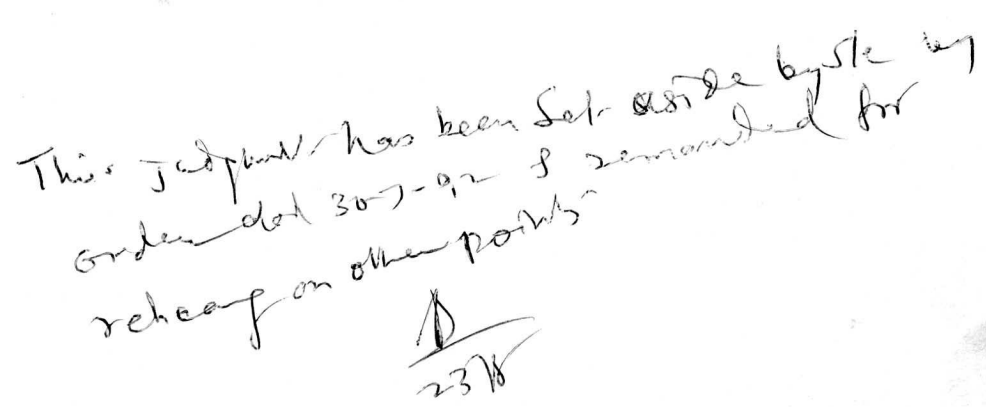 This judgment has been Set aside by S/c by
order dated 30-7-92 & remanded for
rehearing on other points
23/8